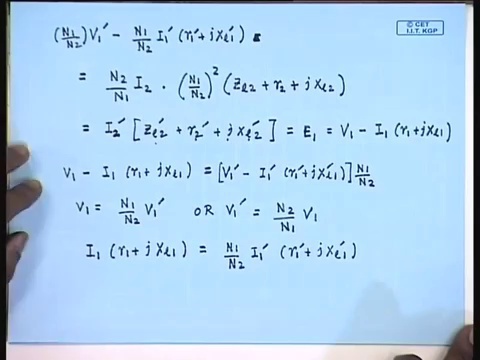 © CET
I.I.T. KGP
(N1/N2) V1′ − N1/N2 I1′ (r1′ + jxl1′)
= N2/N1 I2 · (N1/N2)² (Zl2 + r2 + jxl2)
= I2′ [Zl2′ + r2′ + jxl2′] = E1 = V1 − I1 (r1 + jxl1)
V1 − I1 (r1 + jxl1) = [V1′ − I1′ (r1′ + jxl1′)] N1/N2
V1 = N1/N2 V1′ OR V1′ = N2/N1 V1
I1 (r1 + jxl1) = N1/N2 I1′ (r1′ + jxl1′)